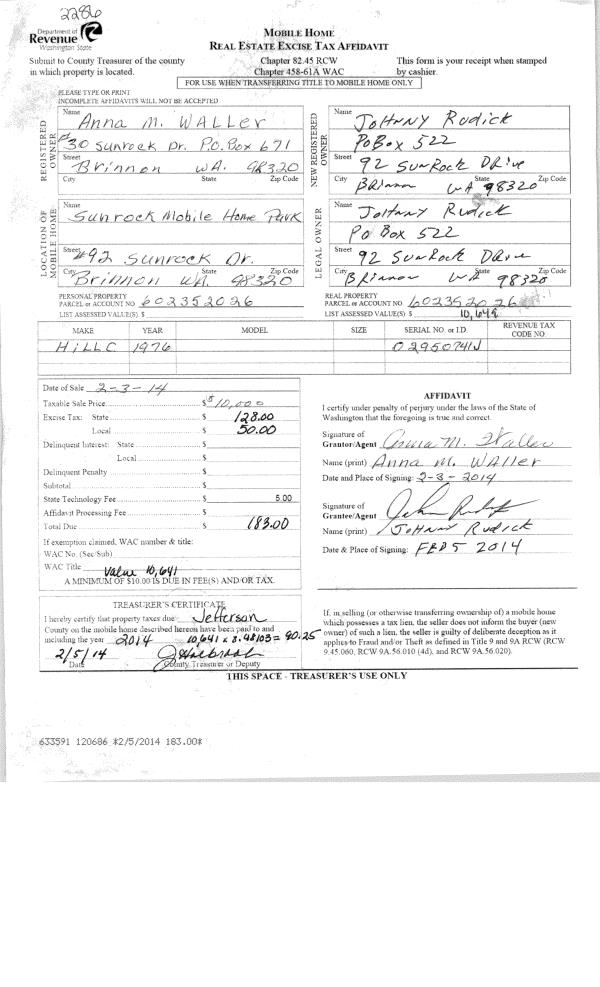 2286
Department of
Revenue
Washington State
MOBILE HOME
REAL ESTATE EXCISE TAX AFFIDAVIT
Submit to County Treasurer of the county
in which property is located.
Chapter 82.45 RCW
Chapter 458-61A WAC
This form is your receipt when stamped
by cashier.
FOR USE WHEN TRANSFERRING TITLE TO MOBILE HOME ONLY
PLEASE TYPE OR PRINT
INCOMPLETE AFFIDAVITS WILL NOT BE ACCEPTED
REGISTERED OWNER
Name Anna M. WALLER
#30 Sunrock Dr. P.O. Box 671
Street
Brinnon WA. 98320
City State Zip Code
NEW REGISTERED OWNER
Name JOHNNY RUDICK
PO Box 522
Street 92 SunRock DRive
City BRinnon WA State 98320 Zip Code
LOCATION OF MOBILE HOME
Name
Sunrock Mobile Home Park
Street #92 Sunrock Dr.
City Brinnon WA. State 98320 Zip Code
LEGAL OWNER
Name JOHNNY RUDICK
Po Box 522
Street 92 SunRock DRive
City BRinnon WA State 98320 Zip Code
PERSONAL PROPERTY
PARCEL or ACCOUNT NO. 602352026
LIST ASSESSED VALUE(S) $
REAL PROPERTY
PARCEL or ACCOUNT NO. 602352026
LIST ASSESSED VALUE(S) $ 10,641
MAKE YEAR MODEL SIZE SERIAL NO. or I.D. REVENUE TAX CODE NO.
HiLLC 1976 02950741J
Date of Sale 2-3-14
Taxable Sale Price $ $10,000
Excise Tax: State $ 128.00
Local $ 50.00
Delinquent Interest: State $
Local $
Delinquent Penalty $
Subtotal $
State Technology Fee $ 5.00
Affidavit Processing Fee $
Total Due $ 183.00
If exemption claimed, WAC number & title:
WAC No. (Sec/Sub)
WAC Title Value 10,641
A MINIMUM OF $10.00 IS DUE IN FEE(S) AND/OR TAX.
AFFIDAVIT
I certify under penalty of perjury under the laws of the State of
Washington that the foregoing is true and correct.
Signature of
Grantor/Agent Anna M. Waller
Name (print) Anna M. WALLer
Date and Place of Signing: 2-3-2014
Signature of
Grantee/Agent
Name (print) JOHNNY RUDICK
Date & Place of Signing: FEB 5 2014
TREASURER'S CERTIFICATE
I hereby certify that property taxes due Jefferson
County on the mobile home described hereon have been paid to and
including the year 2014 10,641 x 8.48103 = 90.25
2/5/14
Date County Treasurer or Deputy
If, in selling (or otherwise transferring ownership of) a mobile home
which possesses a tax lien, the seller does not inform the buyer (new
owner) of such a lien, the seller is guilty of deliberate deception as it
applies to Fraud and/or Theft as defined in Title 9 and 9A RCW (RCW
9.45.060, RCW 9A.56.010 (4d), and RCW 9A.56.020).
THIS SPACE - TREASURER'S USE ONLY
633591 120686 *2/5/2014 183.00*